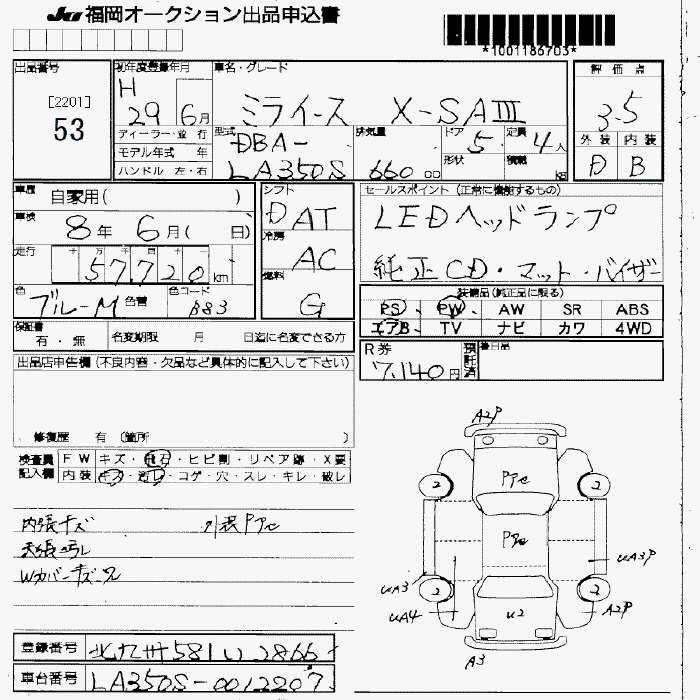 JU 福岡オークション出品申込書
*1001186703*
出品番号
[2201]
53
初年度登録年月
H 29 6月
車名・グレード
ミライース X-SAⅢ
評価点
3.5
ディーラー・並行
モデル年式 年
ハンドル 左・右
型式
DBA-
LA350S
排気量
660 cc
ドア 5
形状
定員 4人
積載 kg
外装 内装
D B
車歴 自家用( )
車検 8年 6月( 日)
走行 十 万 千 百 十
57,720km
色 ブルーM 色替 色コード B83
シフト
DAT
冷房
AC
燃料
G
セールスポイント (正常に機能するもの)
LEDヘッドランプ
純正CD・マット・バイザー
装備品(純正品に限る)
PS PW AW SR ABS
エアB TV ナビ カワ 4WD
保証書
有・無 名変期限 月 日迄に名変できる方
R券 7,140円 預託済 後日品
出品店申告欄 (不良内容・欠品など具体的に記入して下さい)
修復歴 有 (箇所 )
検査員記入欄
FW キズ・飛石・ヒビ割・リペア跡・X要
内装 キズ・汚レ・コゲ・穴・スレ・キレ・破レ
内張キズ
天張汚レ
Wカバーキズ・穴
A2P
2 2
PAC
PAC
UA3P
UA3
2 2
UA4 U2 A2P
A3
登録番号 北九州581い2866
車台番号 LA350S-0012207